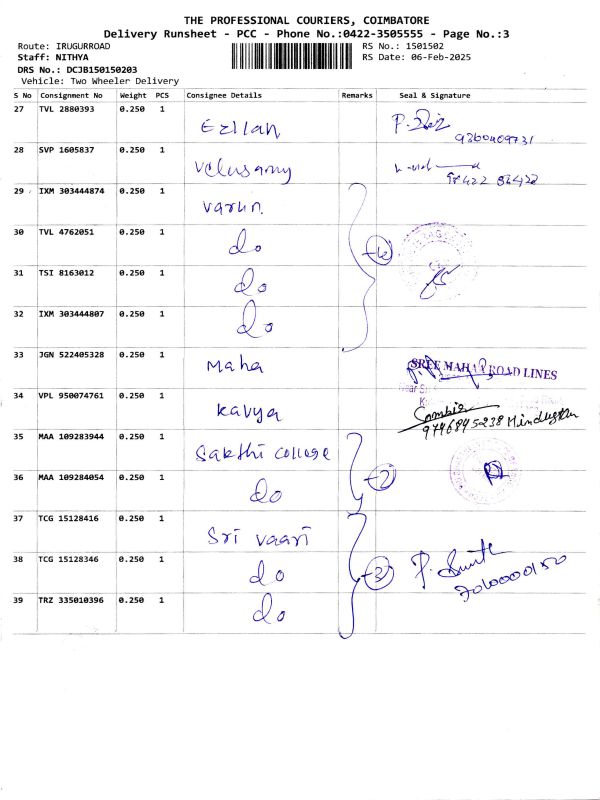 THE PROFESSIONAL COURIERS, COIMBATORE
Delivery Runsheet - PCC - Phone No.:0422-3505555 - Page No.:3
Route: IRUGURROAD RS No.: 1501502
Staff: NITHYA RS Date: 06-Feb-2025
DRS No.: DCJB150150203
Vehicle: Two Wheeler Delivery
S No Consignment No Weight PCS Consignee Details Remarks Seal & Signature
27 TVL 2880393 0.250 1 Ezilan
9360409731
28 SVP 1605837 0.250 1 Velusamy
29 IXM 303444874 0.250 1 Varun
30 TVL 4762051 0.250 1 do
31 TSI 8163012 0.250 1 do
32 IXM 303444807 0.250 1 do
33 JGN 522405328 0.250 1 Maha SREE MAHAA ROAD LINES
34 VPL 950074761 0.250 1 Kavya
9746845238
35 MAA 109283944 0.250 1 Sakthi college
36 MAA 109284054 0.250 1 do 2
37 TCG 15128416 0.250 1 Sri vaari
38 TCG 15128346 0.250 1 do 3
39 TRZ 335010396 0.250 1 do